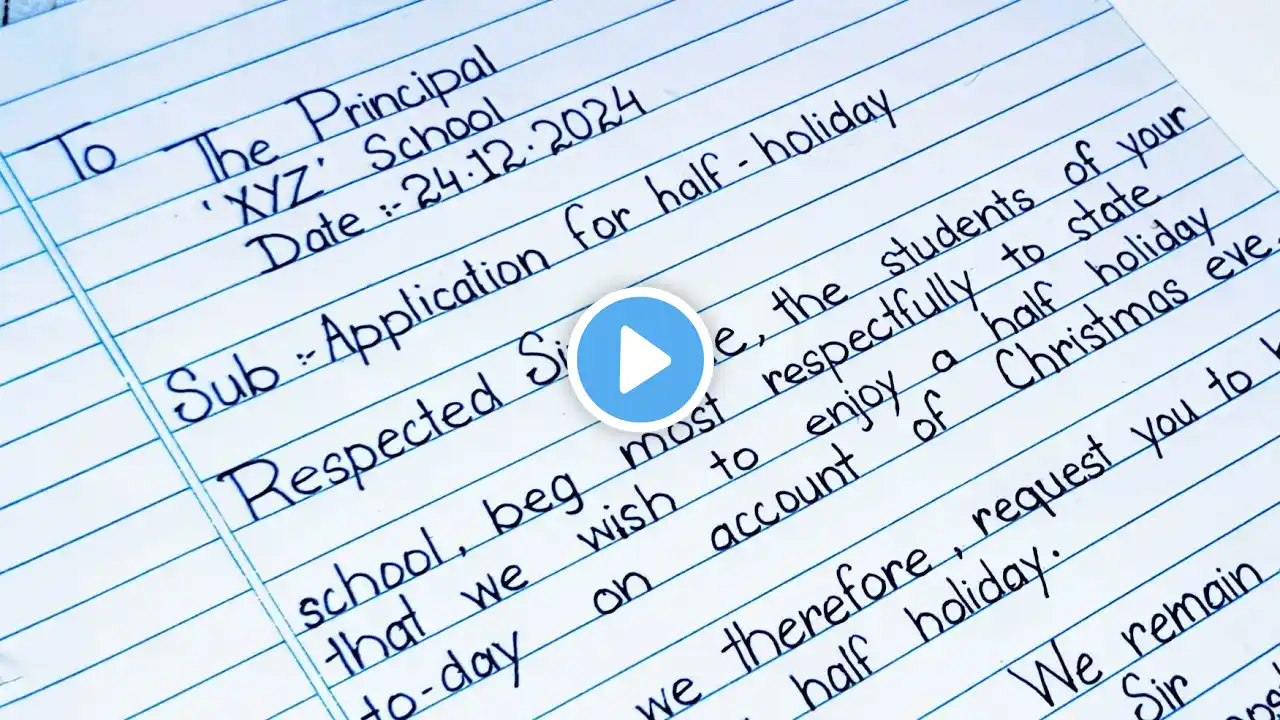 To The Principal
'XYZ' School
Date :- 24.12.2024
Sub :- Application for half-holiday
Respected Si e, the students of your
school, beg most respectfully to state
that we wish to enjoy a half holiday
to-day on account of Christmas eve.
we therefore, request you to
half holiday.
We remain
Sir